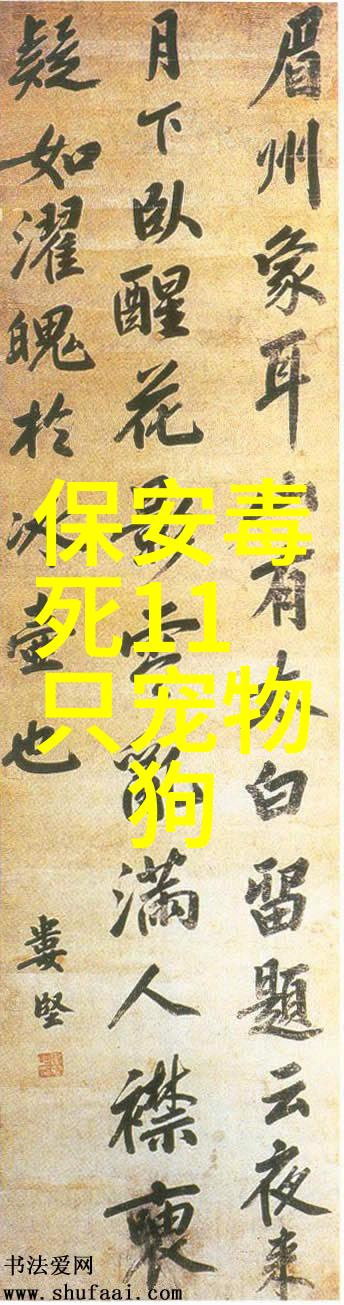 眉州象耳山有太白留題云夜来
月下臥醒花影零亂滿人襟褏
疑如濯魄於冰壺也
婁堅
保安毒
死11
只宠物
狗
书法爱网
www.shufaai.com